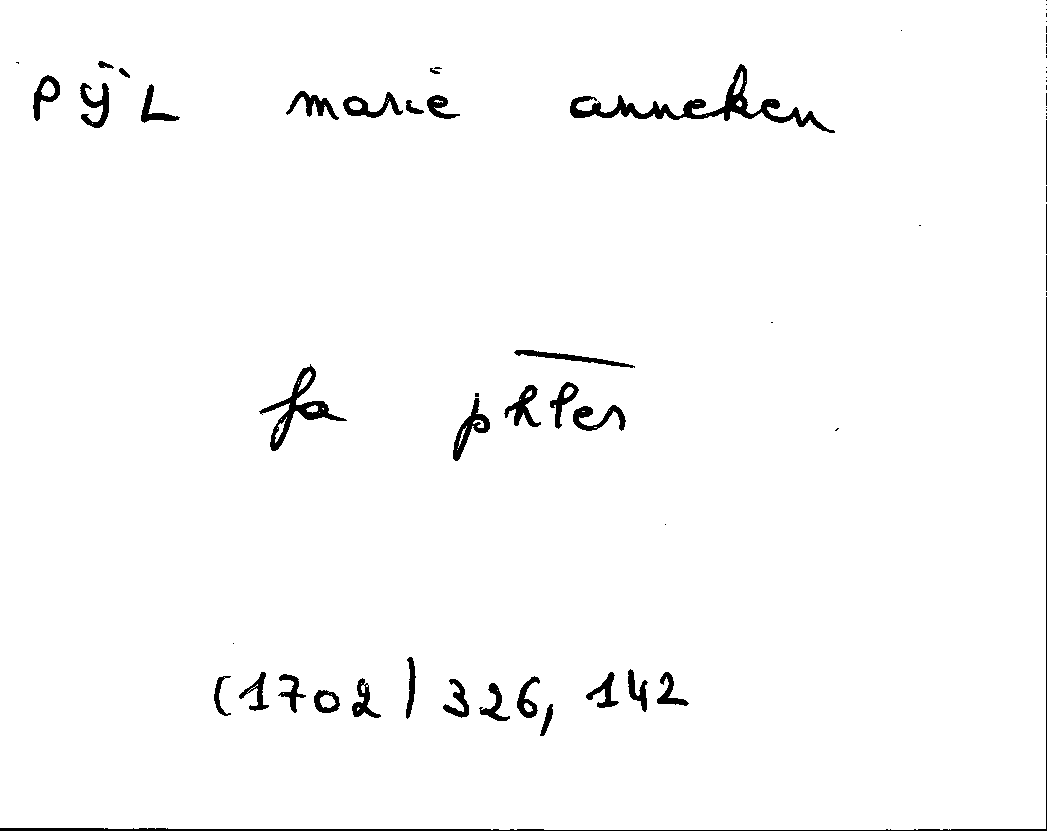 PŸL marie anneken
fa phles
(1702) 326, 142